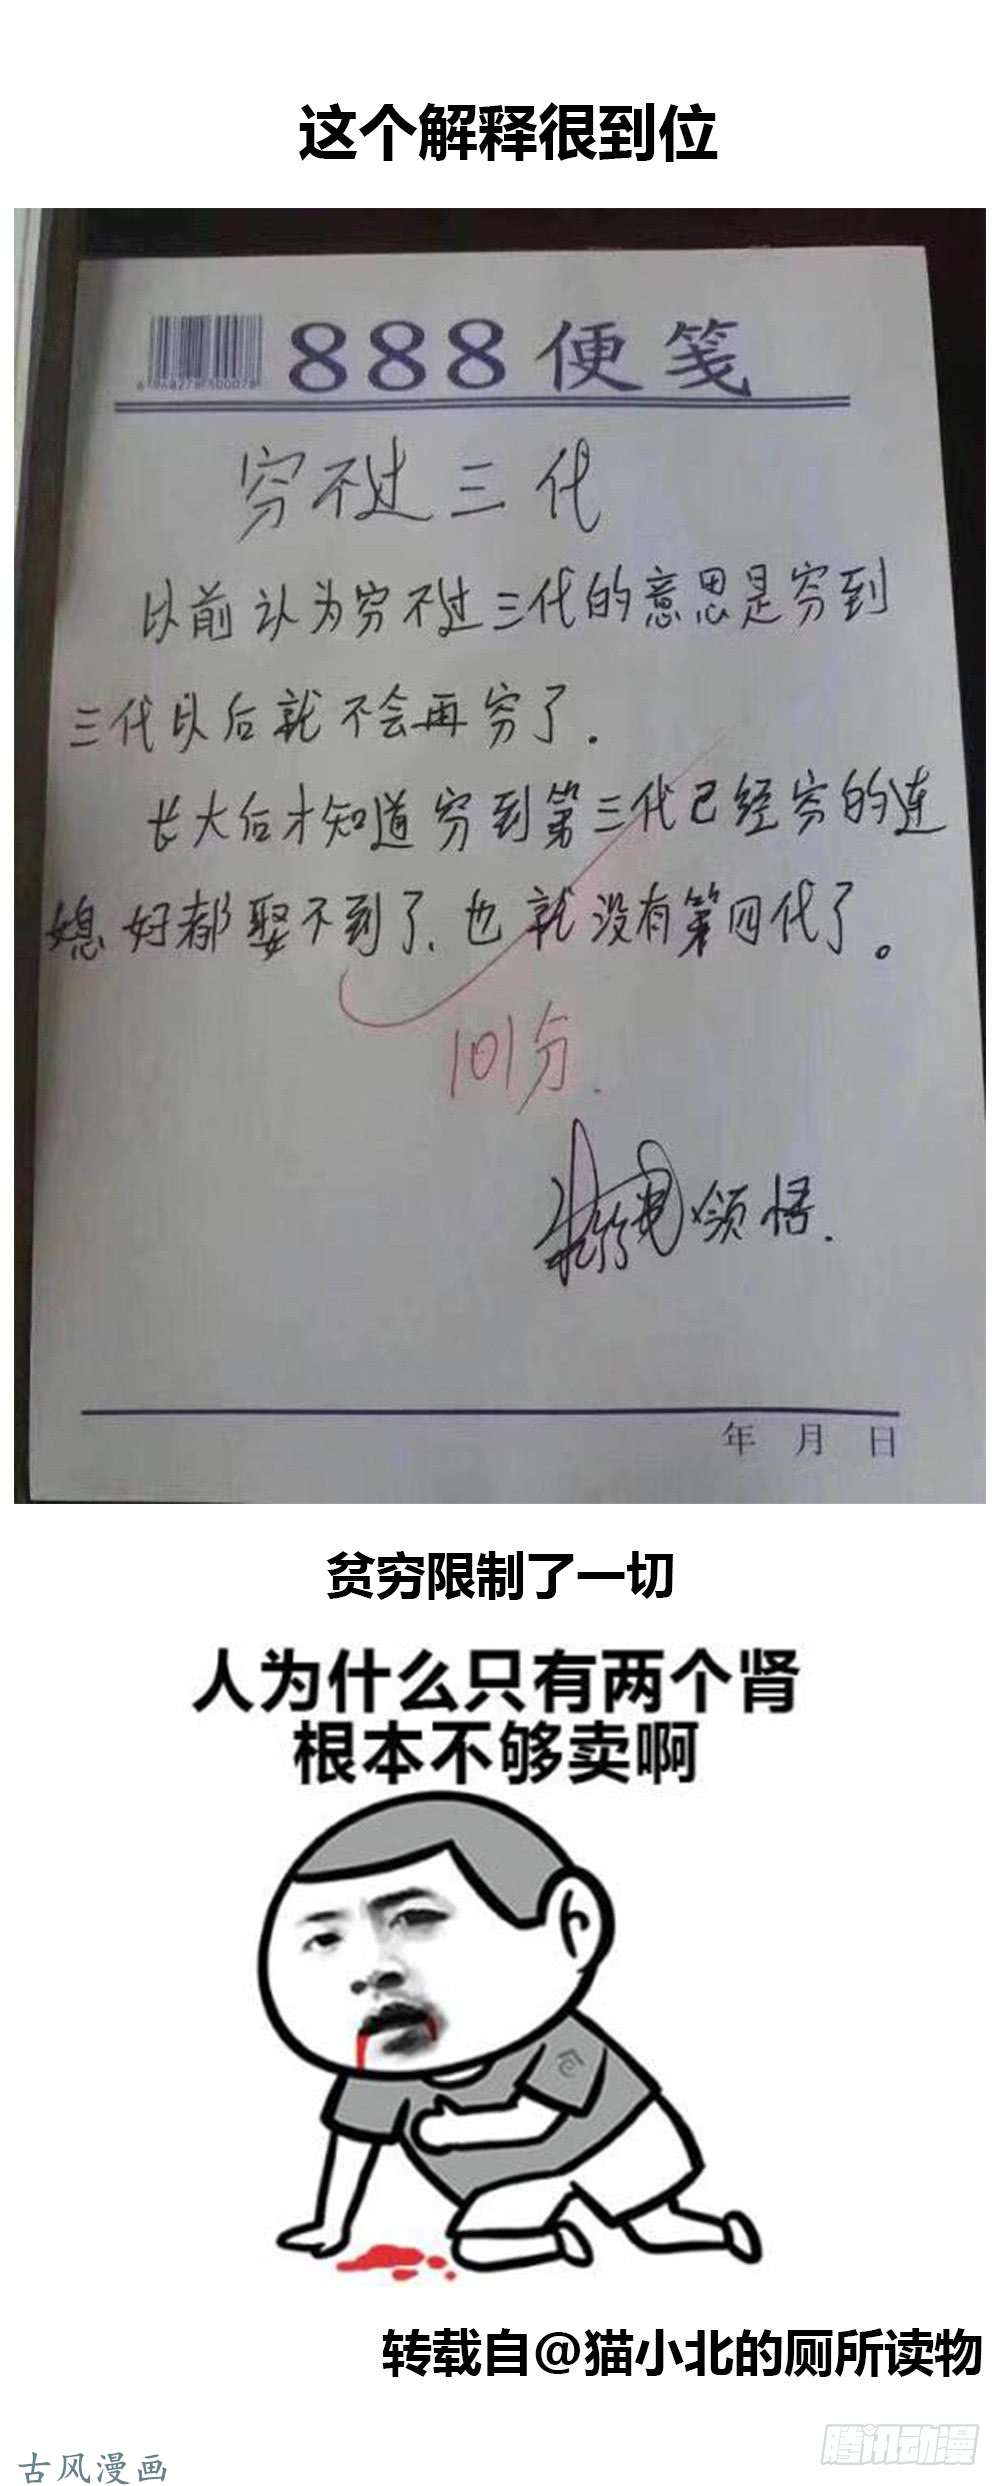 这个解释很到位
888便笺
穷不过三代
以前认为穷不过三代的意思是穷到
三代以后就不会再穷了.
长大后才知道穷到第三代已经穷的连
媳好都娶不到了.也就没有第四代了。
101分.
领悟.
年 月 日
贫穷限制了一切
人为什么只有两个肾
根本不够卖啊
转载自@猫小北的厕所读物
古风漫画
腾讯动漫